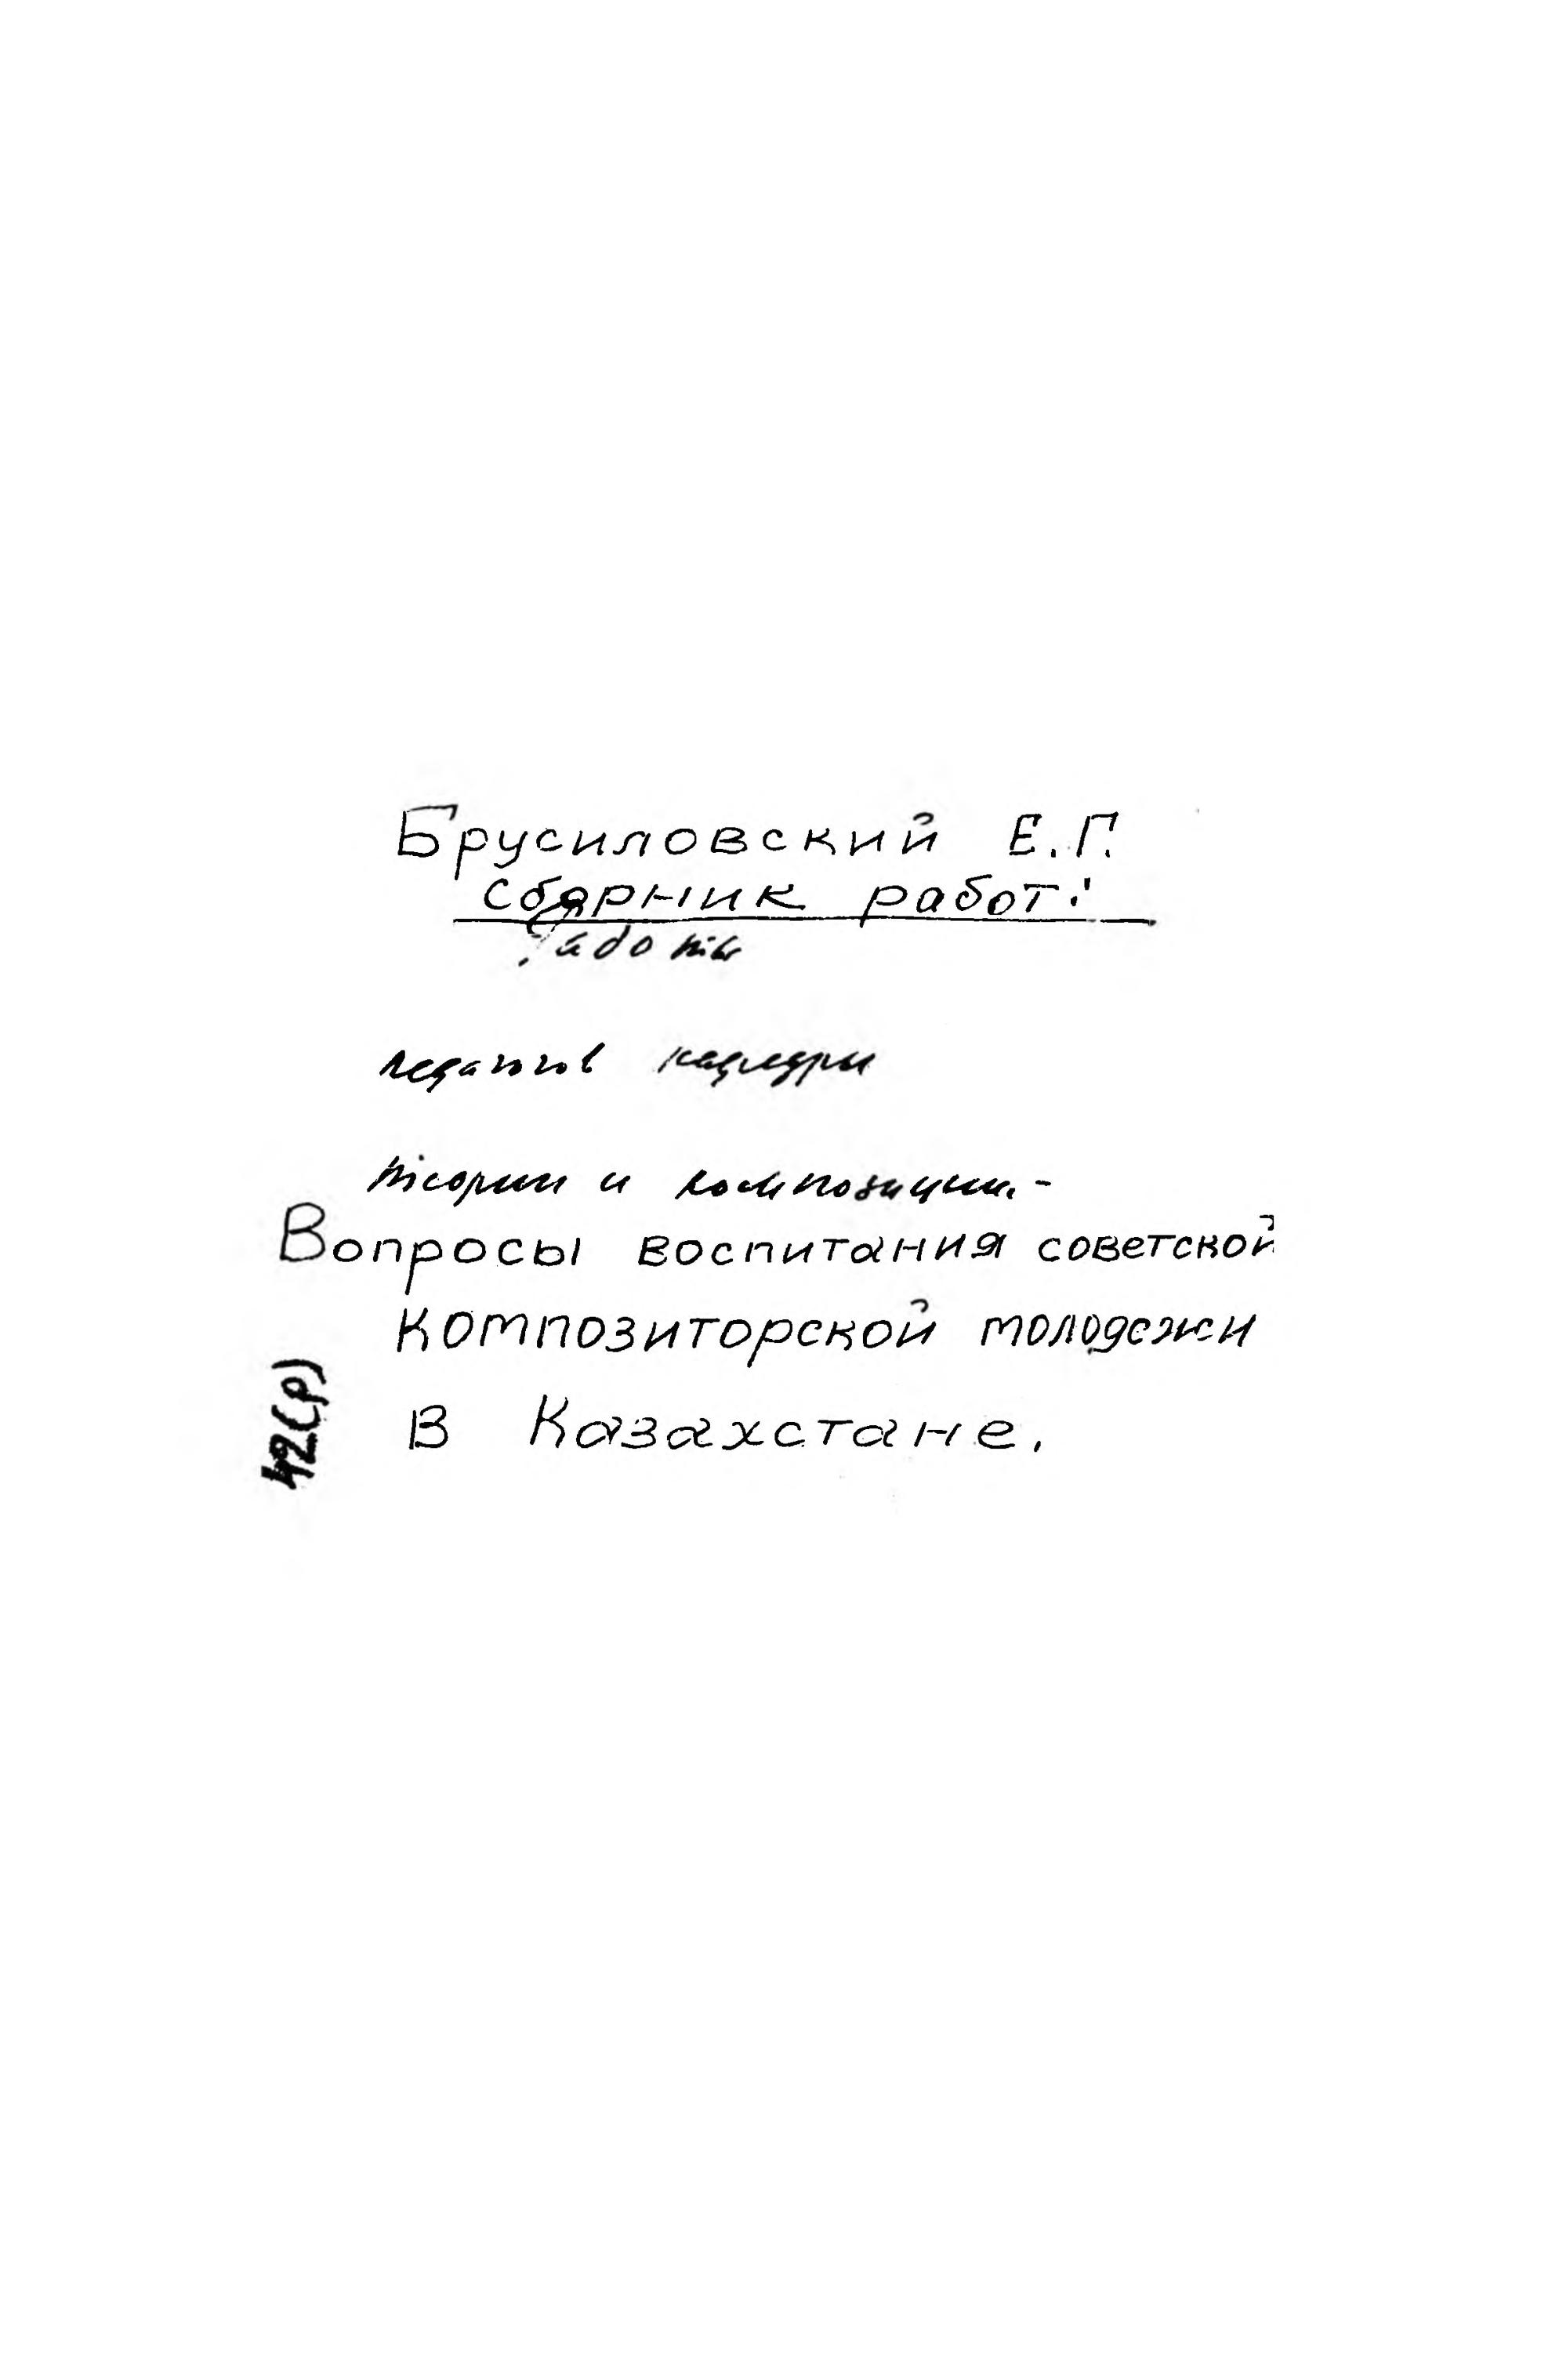 Брусиловский Е.Г.
Сборник работ:
работы
педагогов кафедры
теории и композиции.-
Вопросы воспитания советской
композиторской молодежи
в Казахстане.
42(р)